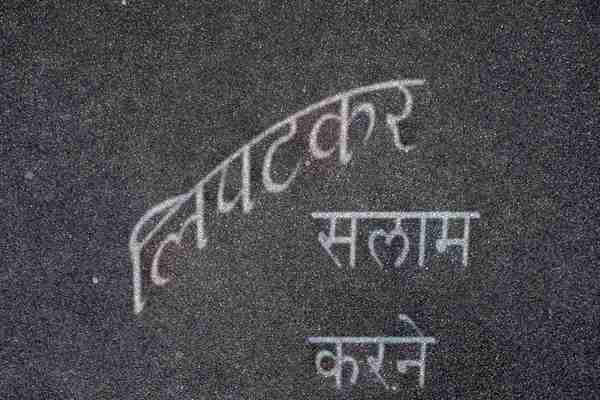 लिपटकर
सलाम
करने